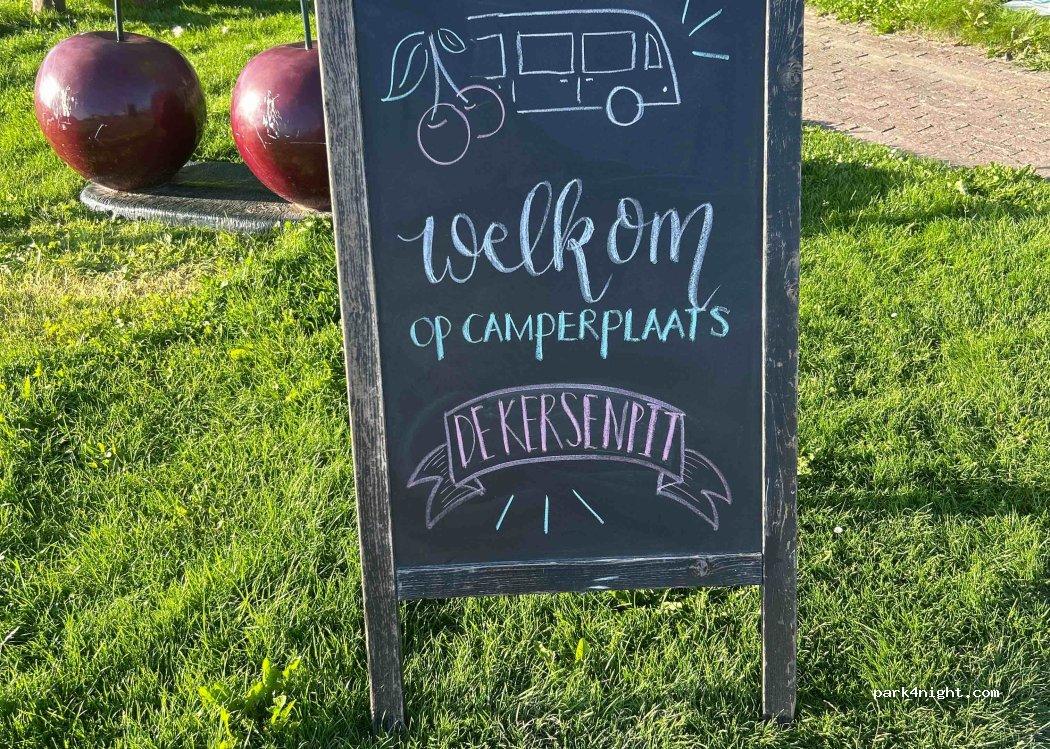 welkom
OP CAMPERPLAATS
DE KERSENPIT
park4night.com